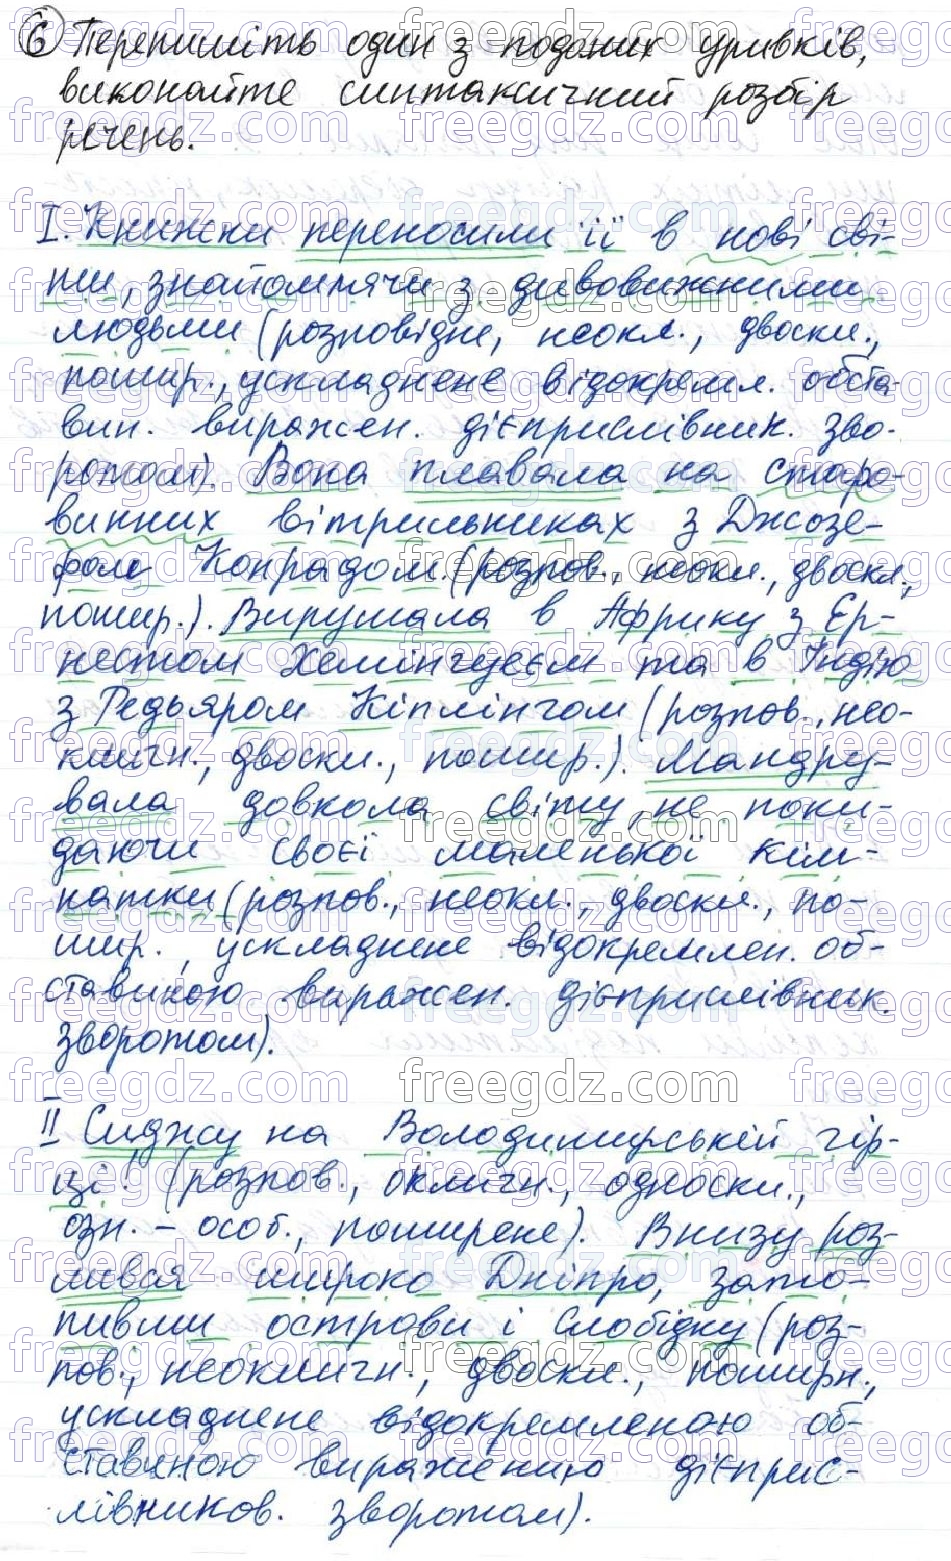 6 Перепишіть один з поданих уривків,
виконайте синтаксичний розбір
речень.
I. Книжки переносили її в нові сві-
ти, знайомлячи з дивовижними
людьми (розповідне, неокл., двоскл.,
пошир., ускладнене відокремл. обста-
вин. виражен. дієприслівник. зво-
ротом). Вона плавала на старо-
винних вітрильниках з Джозе-
фом Конрадом (розпов., неокл., двоскл.,
пошир.). Вирушала в Африку з Ер-
нестом Хемінгуеєм та в Індію
з Редьяром Кіплінгом (розпов., нео-
кличн., двоскл., пошир.). Мандру-
вала довкола світу, не поки-
даючи своєї маленької кім-
натки (розпов., неокл., двоскл., по-
шир., ускладнене відокремлен. об-
ставиною виражен. дієприслівник.
зворотом).
II Сиджу на Володимирській гір-
ці! (розпов., окличн., односкл.,
озн. – особ., поширене). Внизу роз-
лився широко Дніпро, зато-
пивши острови і Слобідку (роз-
пов., неокличн., двоскл., поширн.,
ускладнене відокремленою об-
ставиною вираженою дієприс-
лівников. зворотом).
freegdz.com